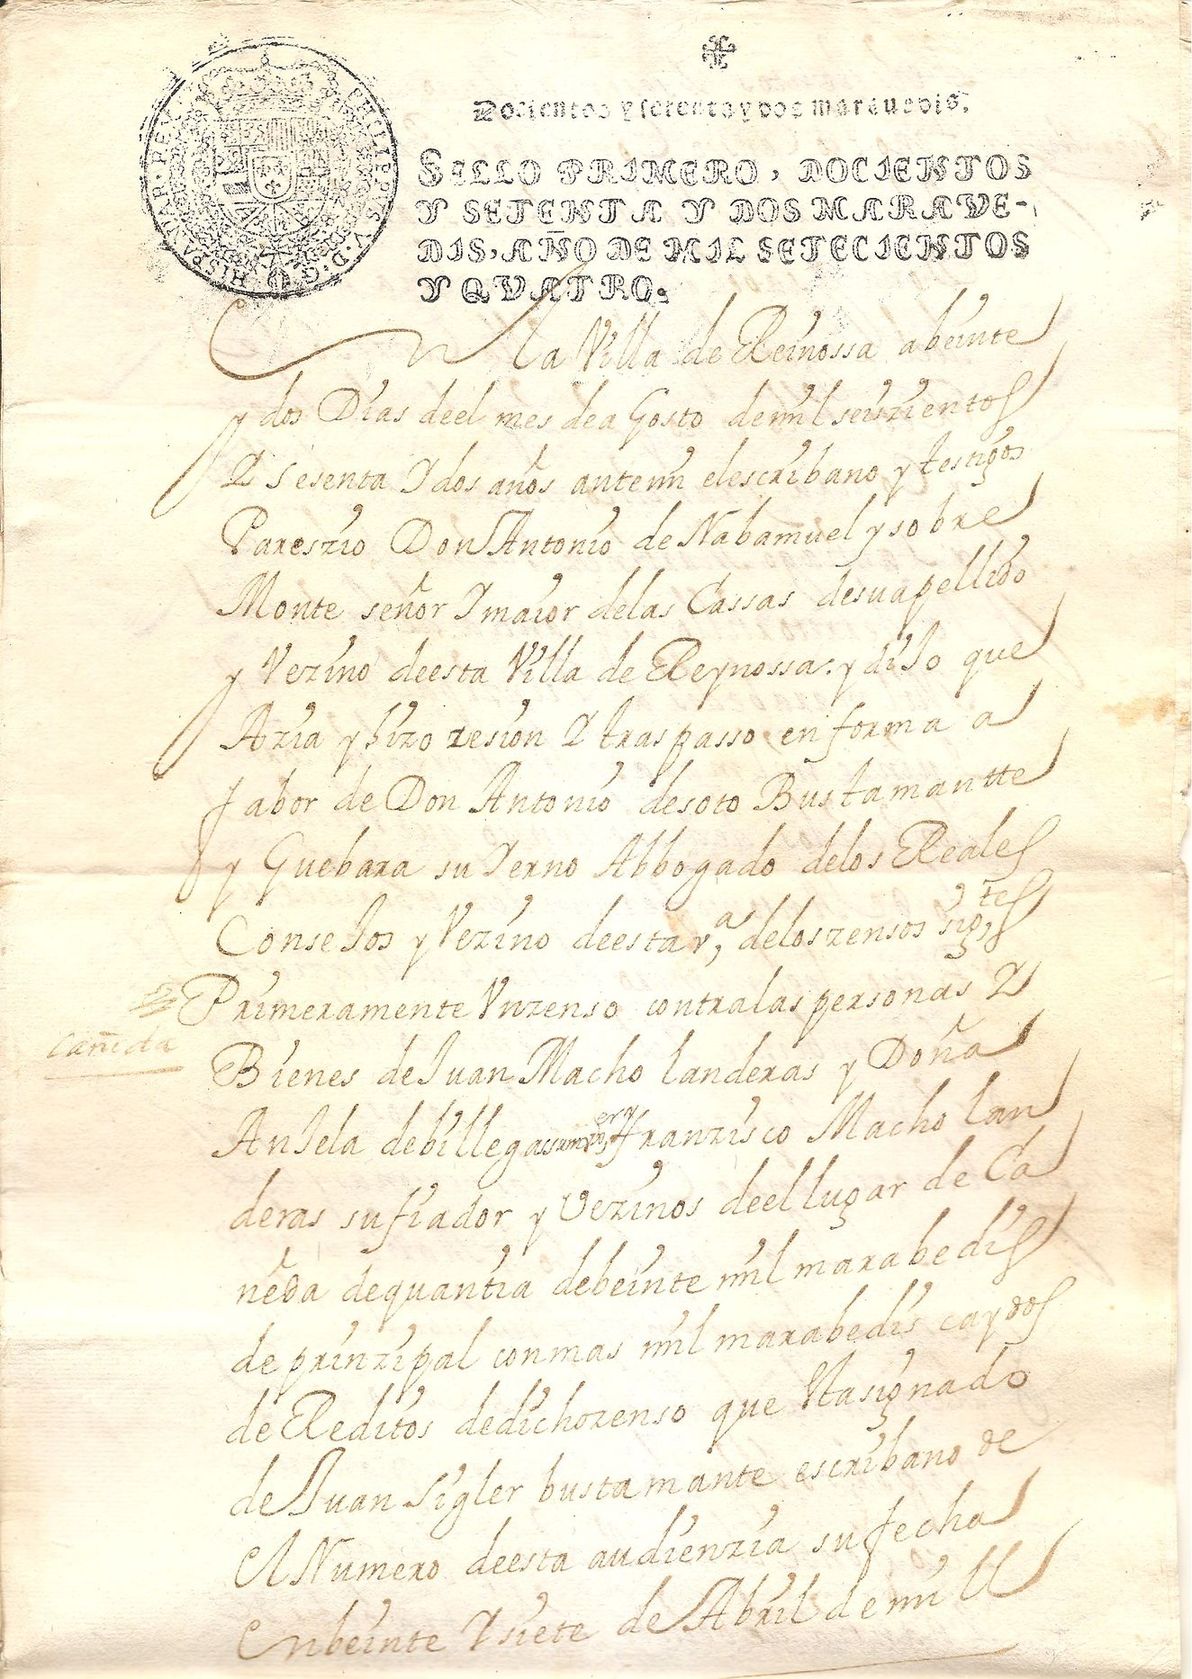 PHILIPPUS V D G HISPANIAR REX
Docientos y setenta y dos maravedis.
SELLO PRIMERO, DOCIENTOS
Y SETENTA Y DOS MARAVE-
DIS, AÑO DE MIL SETECIENTOS
Y QVATRO.
En la Villa de Reinossa abeinte
y dos Dias deel mes de a Gosto de mil seiszientos
Y Sesenta Y dos años antemi elescribano y testigos
Pareszio Don Antonio de Nabamuel y sobre
Monte señor Y maior delas Cassas desuapellido
y Vezino deesta Villa de Reynossa. y diJo que
Azia y hizo zesion Y traspasso en forma a
fabor de Don Antonio desoto Bustamantte
y Guebara su Yerno Abbogado delos Reales
ConseJos y Vezino deesta vª, deloszensos sigtes
Primeramente Vnzenso contralas personas Y
Cañeda
Bienes de Juan Macho landeras y Doña
AnJela debillegas sumuger y Franzisco Macho lan
deras sufiador y Vezinos deellugar de Ca
ñeda dequantia debeinte mil marabedis
de prinzipal conmas mil marabedis caydos
de Reditos dedichozenso que Stasignado
de Juan Sigler bustamante escribano de
el Numero deesta audienzia sufecha
enbeinte Y siete de Abril de mill